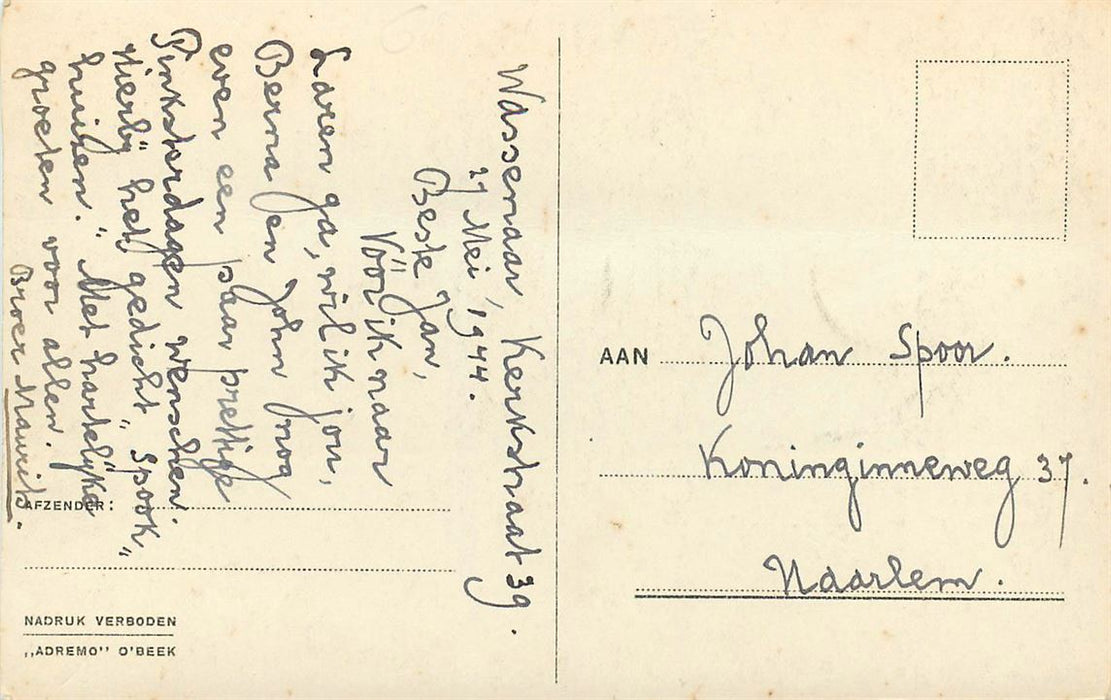 Wassenaar, Kerkstraat 39.
27 Mei, 1944.
Beste Jan,
Vóór ik naar
Laren ga, wil ik jou,
Berna en John nog
even een paar prettige
Pinksterdagen wenschen.
Hierbij het gedicht „Spook„
huizen." Met hartelijke
groeten voor allen.
Broer Maurits.
AFZENDER:
NADRUK VERBODEN
„ADREMO" O'BEEK
AAN Johan Spoor.
Koninginneweg 37.
Haarlem.